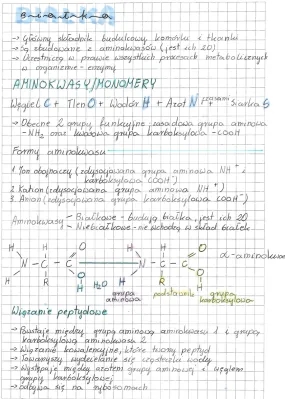 BIAŁKA
→ Główny składnik budulcowy komórki i tkanki
→ Są zbudowane z aminokwasów (jest ich 20)
→ Uczestniczą w prawie wszystkich procesach metabolicznych
w organizmie - enzymy
AMINOKWASY/MONOMERY
Węgiel C + Tlen O + Wodór H + Azot N + czasami Siarka S
→ Obecne 2 grupy funkcyjne zasadowa grupa aminowa
-NH₂ oraz kwasowa grupa karboksylowa -COOH
Formy aminokwasu
1. Jon obojnaczy (zdysocjowana grupa aminowa NH⁺ i
karboksylowa COOH⁻)
2. Kation (zdysocjowana grupa aminowa NH⁺)
3. Anion (zdysocjowana grupa karboksylowa COOH⁻)
Aminokwasy
Białkowe - budują białka, jest ich 20
Niebiałkowe - nie wchodzą w skład białek
H H O H H O
N - C - C N - C - C α-aminokwas
H R O H H R O H
H₂O
grupa aminowa
podstawnik
grupa karboksylowa
Wiązanie peptydowe
→ Powstaje między grupą aminową aminokwasu 1 a grupą
karboksylową aminokwasu 2
→ Wiązanie kowalencyjne, które tworzy peptyd
→ Towarzyszy wydzielanie się cząsteczki wody
→ Występuje między azotem grupy aminowej i węglem
grupy karboksylowej
→ odbywa się na rybosomach